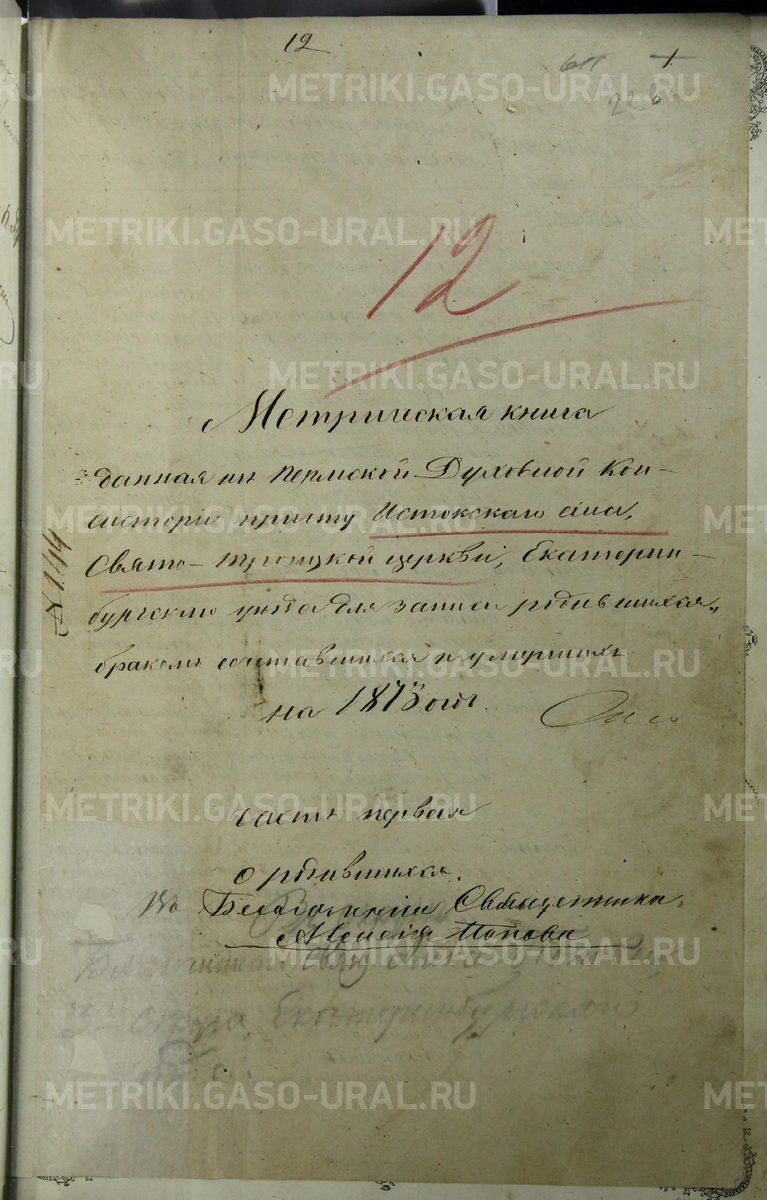 12
226
12
Метрическая книга
данная изъ Пермской Духовной Кон-
систоріи причту Истокскаго села,
Свято-Троицкой церкви, Екатерин-
бургскаго уѣзда для записи родившихся,
бракомъ сочетавшихся и умершихъ
на 1873 годъ.
часть первая
о родившихся.
Въ Священника
Алексія Попова
Екатеринбургскаго
METRIKI.GASO-URAL.RU